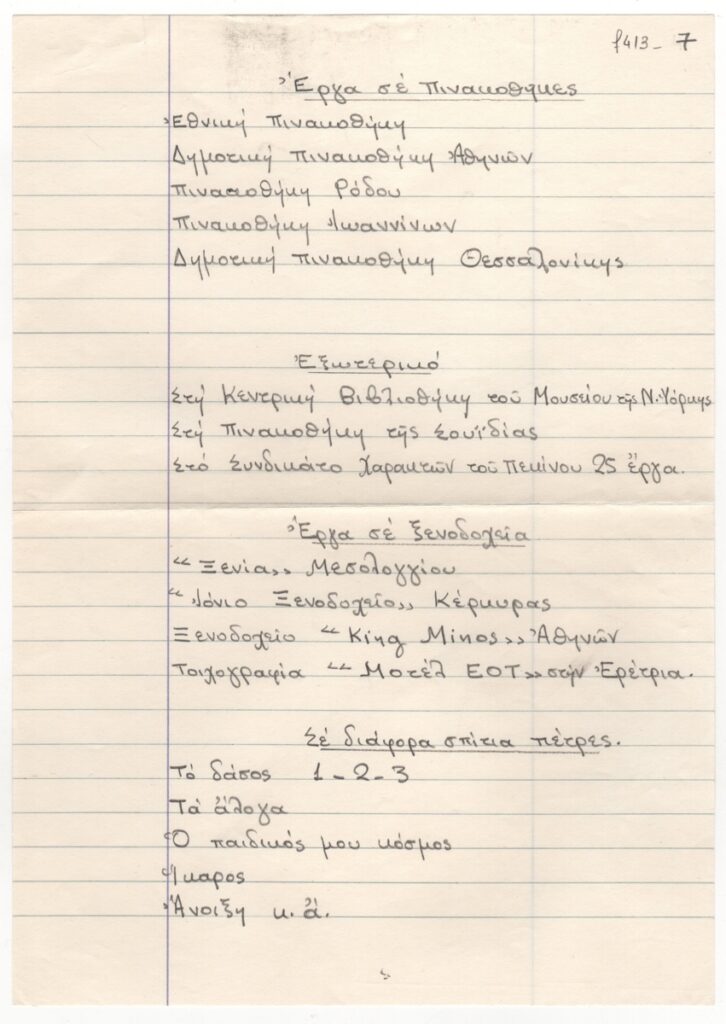 f413- 7
Ἔργα σέ πινακοθήκες
Ἐθνική πινακοθήκη
Δημοτική πινακοθήκη Ἀθηνῶν
Πινακοθήκη Ρόδου
Πινακοθήκη Ἰωαννίνων
Δημοτική πινακοθήκη Θεσσαλονίκης
Ἐξωτερικό
Στή Κεντρική Βιβλιοθήκη τοῦ Μουσείου τῆς Ν. Ὑόρκης
Στή πινακοθήκη τῆς Σουϊδίας
Στό Συνδικάτο Χαρακτῶν τοῦ Πεκίνου 25 ἔργα.
Ἔργα σέ ξενοδοχεῖα
“Ξενία„ Μεσολογγίου
“Ἰόνιο Ξενοδοχεῖο„ Κέρκυρας
Ξενοδοχεῖο “King Minos„ Ἀθηνῶν
Τοιχογραφία “Μοτέλ ΕΟΤ„ στήν Ἐρέτρια.
Σέ διάφορα σπίτια πέτρες.
Τό δάσος 1-2-3
Τά ἄλογα
Ὁ παιδικός μου κόσμος
Ἴκαρος
Ἄνοιξη κ. ἄ.